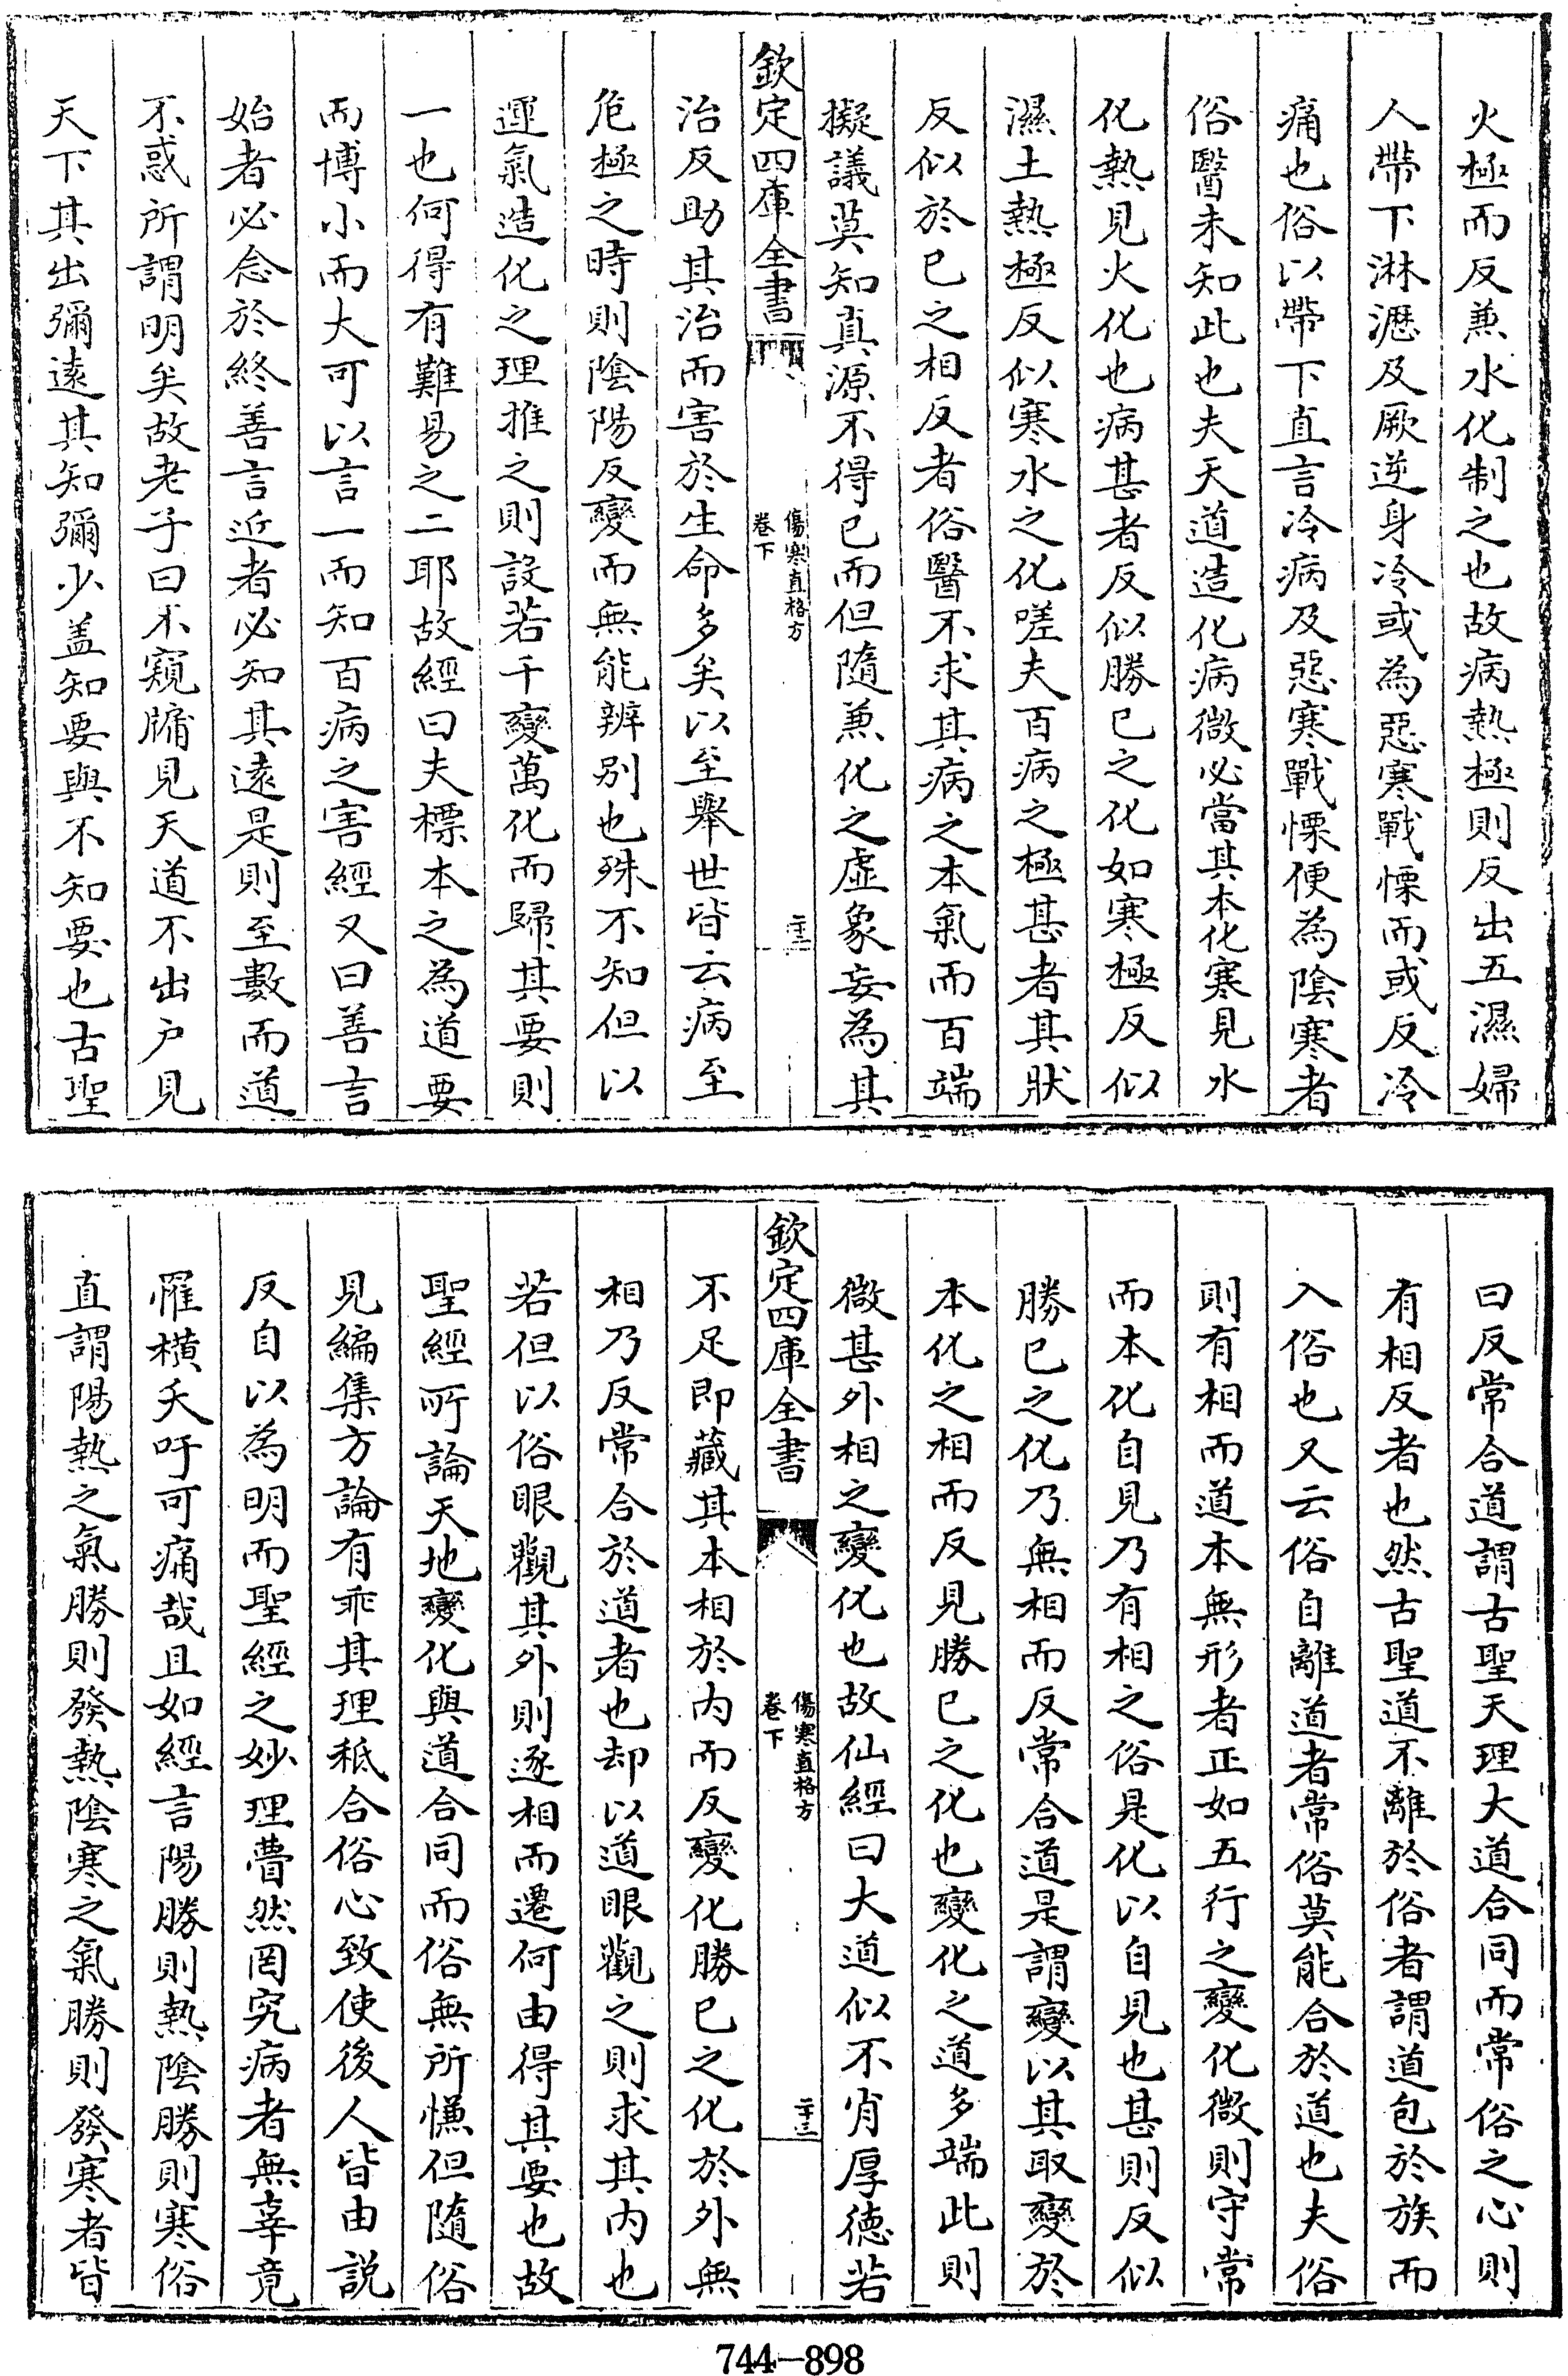 火極而反兼水化制之也故病熱極則反出五濕婦
人帶下淋瀝及厥逆身冷或為惡寒戰慄而或反冷
痛也俗以帶下直言冷病及惡寒戰慄便為陰寒者
俗醫未知此也夫天道造化病微必當其本化寒見水
化熱見火化也病甚者反似勝已之化如寒極反似
濕土熱極反似寒水之化嗟夫百病之極甚者其狀
反似於已之相反者俗醫不求其病之本氣而百端
擬議莫知真源不得已而但隨兼化之虛象妄為其
欽定四庫全書
傷寒直格方
卷下
二十二
治反助其治而害於生命多矣以至舉世皆云病至
危極之時則陰陽反變而無能辨別也殊不知但以
運氣造化之理推之則設若千變萬化而歸其要則
一也何得有難易之二耶故經曰夫標本之為道要
而博小而大可以言一而知百病之害經又曰善言
始者必念於終善言近者必知其遠是則至數而道
不惑所謂明矣故老子曰不窺牖見天道不出户見
天下其出彌遠其知彌少盖知要與不知要也古聖
曰反常合道謂古聖天理大道合同而常俗之心則
有相反者也然古聖道不離於俗者謂道包於族而
入俗也又云俗自離道者常俗莫能合於道也夫俗
則有相而道本無形者正如五行之變化微則守常
而本化自見乃有相之俗是化以自見也甚則反似
勝已之化乃無相而反常合道是謂變以其取變於
本化之相而反見勝已之化也變化之道多端此則
微甚外相之變化也故仙經曰大道似不肖厚德若
欽定四庫全書
傷寒直格方
卷下
二十三
不足即藏其本相於內而反變化勝已之化於外無
相乃反常合於道者也却以道眼觀之則求其内也
若但以俗眼觀其外則逐相而遷何由得其要也故
聖經所論天地變化與道合同而俗無所慊但隨俗
見編集方論有乖其理秪合俗心致使後人皆由説
反自以為明而聖經之妙理瞢然罔究病者無辜竟
罹橫夭吁可痛哉且如經言陽勝則熱陰勝則寒俗
直謂陽熱之氣勝則發熱陰寒之氣勝則發寒者皆
744-898